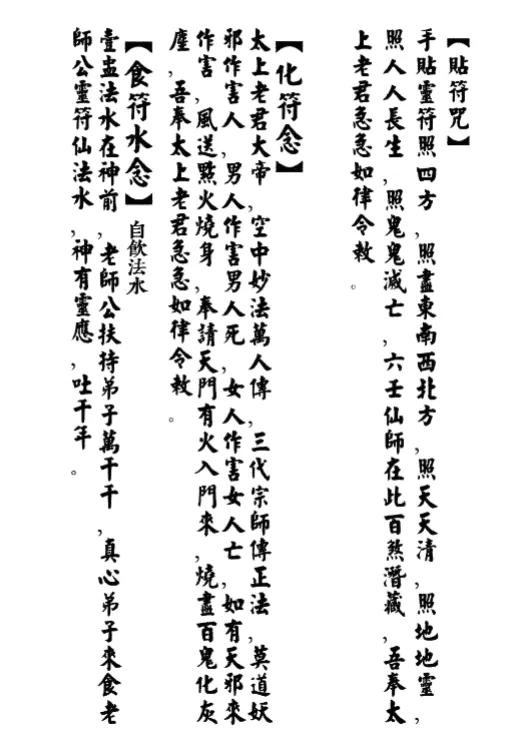 【貼符咒】
手貼靈符照四方，照盡東南西北方，照天天清，照地地靈，
照人人長生，照鬼鬼滅亡，六壬仙師在此百煞潛藏，吾奉太
上老君急急如律令敕。
【化符念】
太上老君大帝，空中妙法萬人傳，三代宗師傳正法，莫道妖
邪作害人，男人作害男人死，女人作害女人亡，如有天邪來
作害，風送點火燒身，奉請天門有火入門來，燒盡百鬼化灰
塵，吾奉太上老君急急如律令敕。
【食符水念】自飲法水
壹盅法水在神前，老師公扶持弟子萬千千，真心弟子來食老
師公靈符仙法水，神有靈應，吐千年。